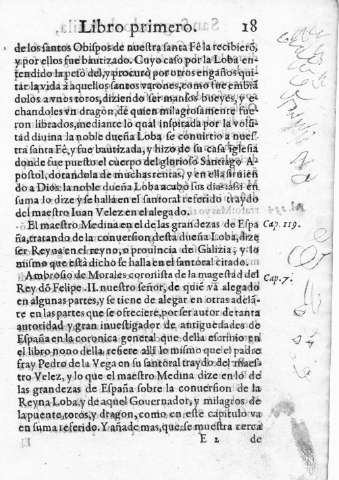 Libro primero. 18
de los santos Obispos de nuestra santa Fè la recibierõ,
y por ellos fue bautizado. Cuyo caso por la Loba en-
tendido la pesò del, y procurò por otros engaños qui-
tar la vida à aquellos santos varones, como fue embiã
dolos a vnos toros, diziendo ser mansos bueyes, y e-
chandoles vn dragon, de quien milagrosamente fue
ron librados, mediante lo qual inspirada por la volũ
tad diuina la noble dueña Loba se conuirtio a nues-
tra santa Fè, y fue bautizada, y hizo de su casa iglesia
donde fue puesto el cuerpo del glorioso Santiago A-
postol, dotandola de muchas rentas, y en ella siruien
do a Dios la noble dueña Loba acabò sus dias: assi en
suma lo dize y se halla en el santoral referido traydo
del maestro Iuan Velez en el alegado.
El maestro Medina en el de las grandezas de Espa
ña, tratando de la conuersion desta dueña Loba, dize
ser Reyna en el reyno, o prouincia de Galizia, y lo
mismo que està dicho se halla en el santoral citado.
Cap. 119.
Ambrosio de Morales coronista de la magestad del
Rey dõ Felipe II. nuestro señor, de quiẽ va alegado
en algunas partes, y se tiene de alegar en otras adelã-
te en las partes que se ofreciere, por ser autor de tanta
autoridad y gran inuestigador de antiguedades de
España en la coronica general que della escriuio en
el libro nono della refiere alli lo mismo que el padre
fray Pedro de la Vega en su santoral traydo del maes-
tro Velez, y lo que el maestro Medina dize en lo de
las grandezas de España sobre la conuersion de la
Reyna Loba, y de aquel Gouernador, y milagros de
la puente, toros, y dragon, como en este capitulo va
en suma referido. Y añade mas, que se muestra cerca
Cap. 7.
E 2 de